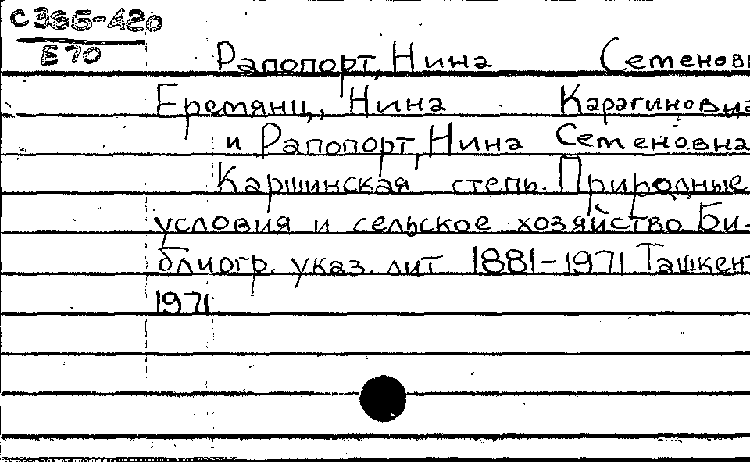 С 365-420
Е 70
Рапопорт, Нина Семенов
Еремянц, Нина Карагиновна
и Рапопорт, Нина Семеновна
Каршинская степь. Природные
условия и сельское хозяйство Би-
блиогр. указ. лит 1881-1971 Ташкент
1971